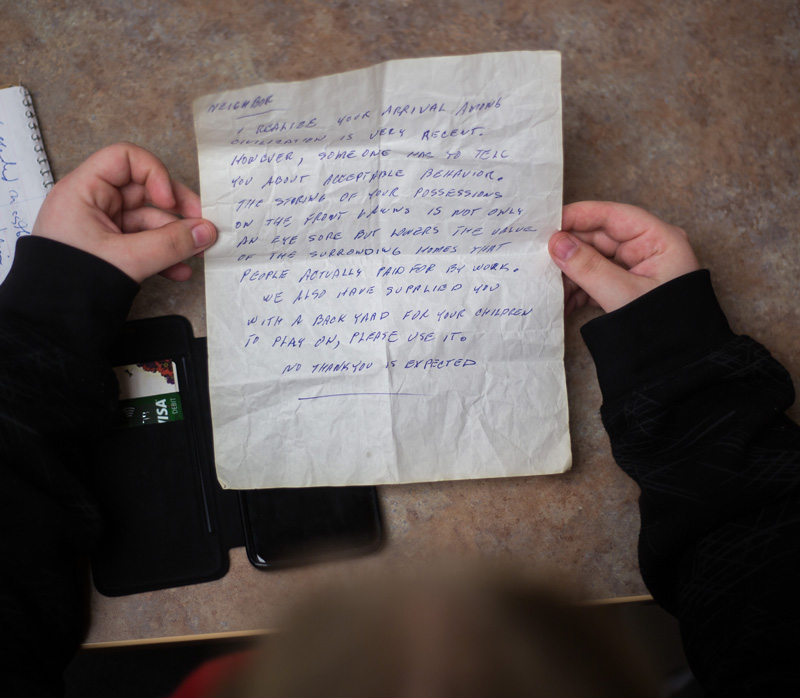 NEIGHBOR
I REALIZE YOUR ARRIVAL AMONG
CIVILIZATION IS VERY RECENT.
HOWEVER, SOMEONE HAS TO TELL
YOU ABOUT ACCEPTABLE BEHAVIOR.
THE STORING OF YOUR POSSESSIONS
ON THE FRONT LAWNS IS NOT ONLY
AN EYE SORE BUT LOWERS THE VALUE
OF THE SURROUNDING HOMES THAT
PEOPLE ACTUALLY PAID FOR BY WORK.
WE ALSO HAVE SUPPLIED YOU
WITH A BACK YARD FOR YOUR CHILDREN
TO PLAY ON, PLEASE USE IT.
NO THANKYOU IS EXPECTED
VISA
DEBIT